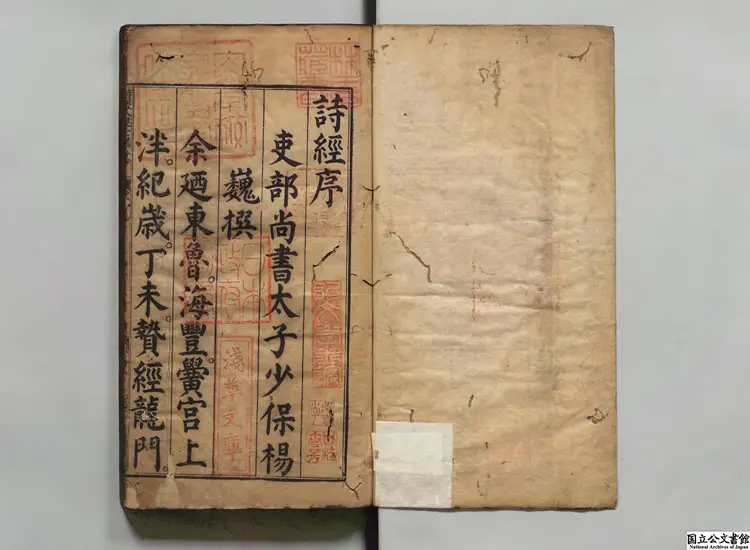 詩經序
吏部尚書太子少保楊
巍撰
余廼東魯。海豐。黌宮上
泮。紀歲。丁未。贄經龍門。
淺草文庫
国立公文書館
National Archives of Japan